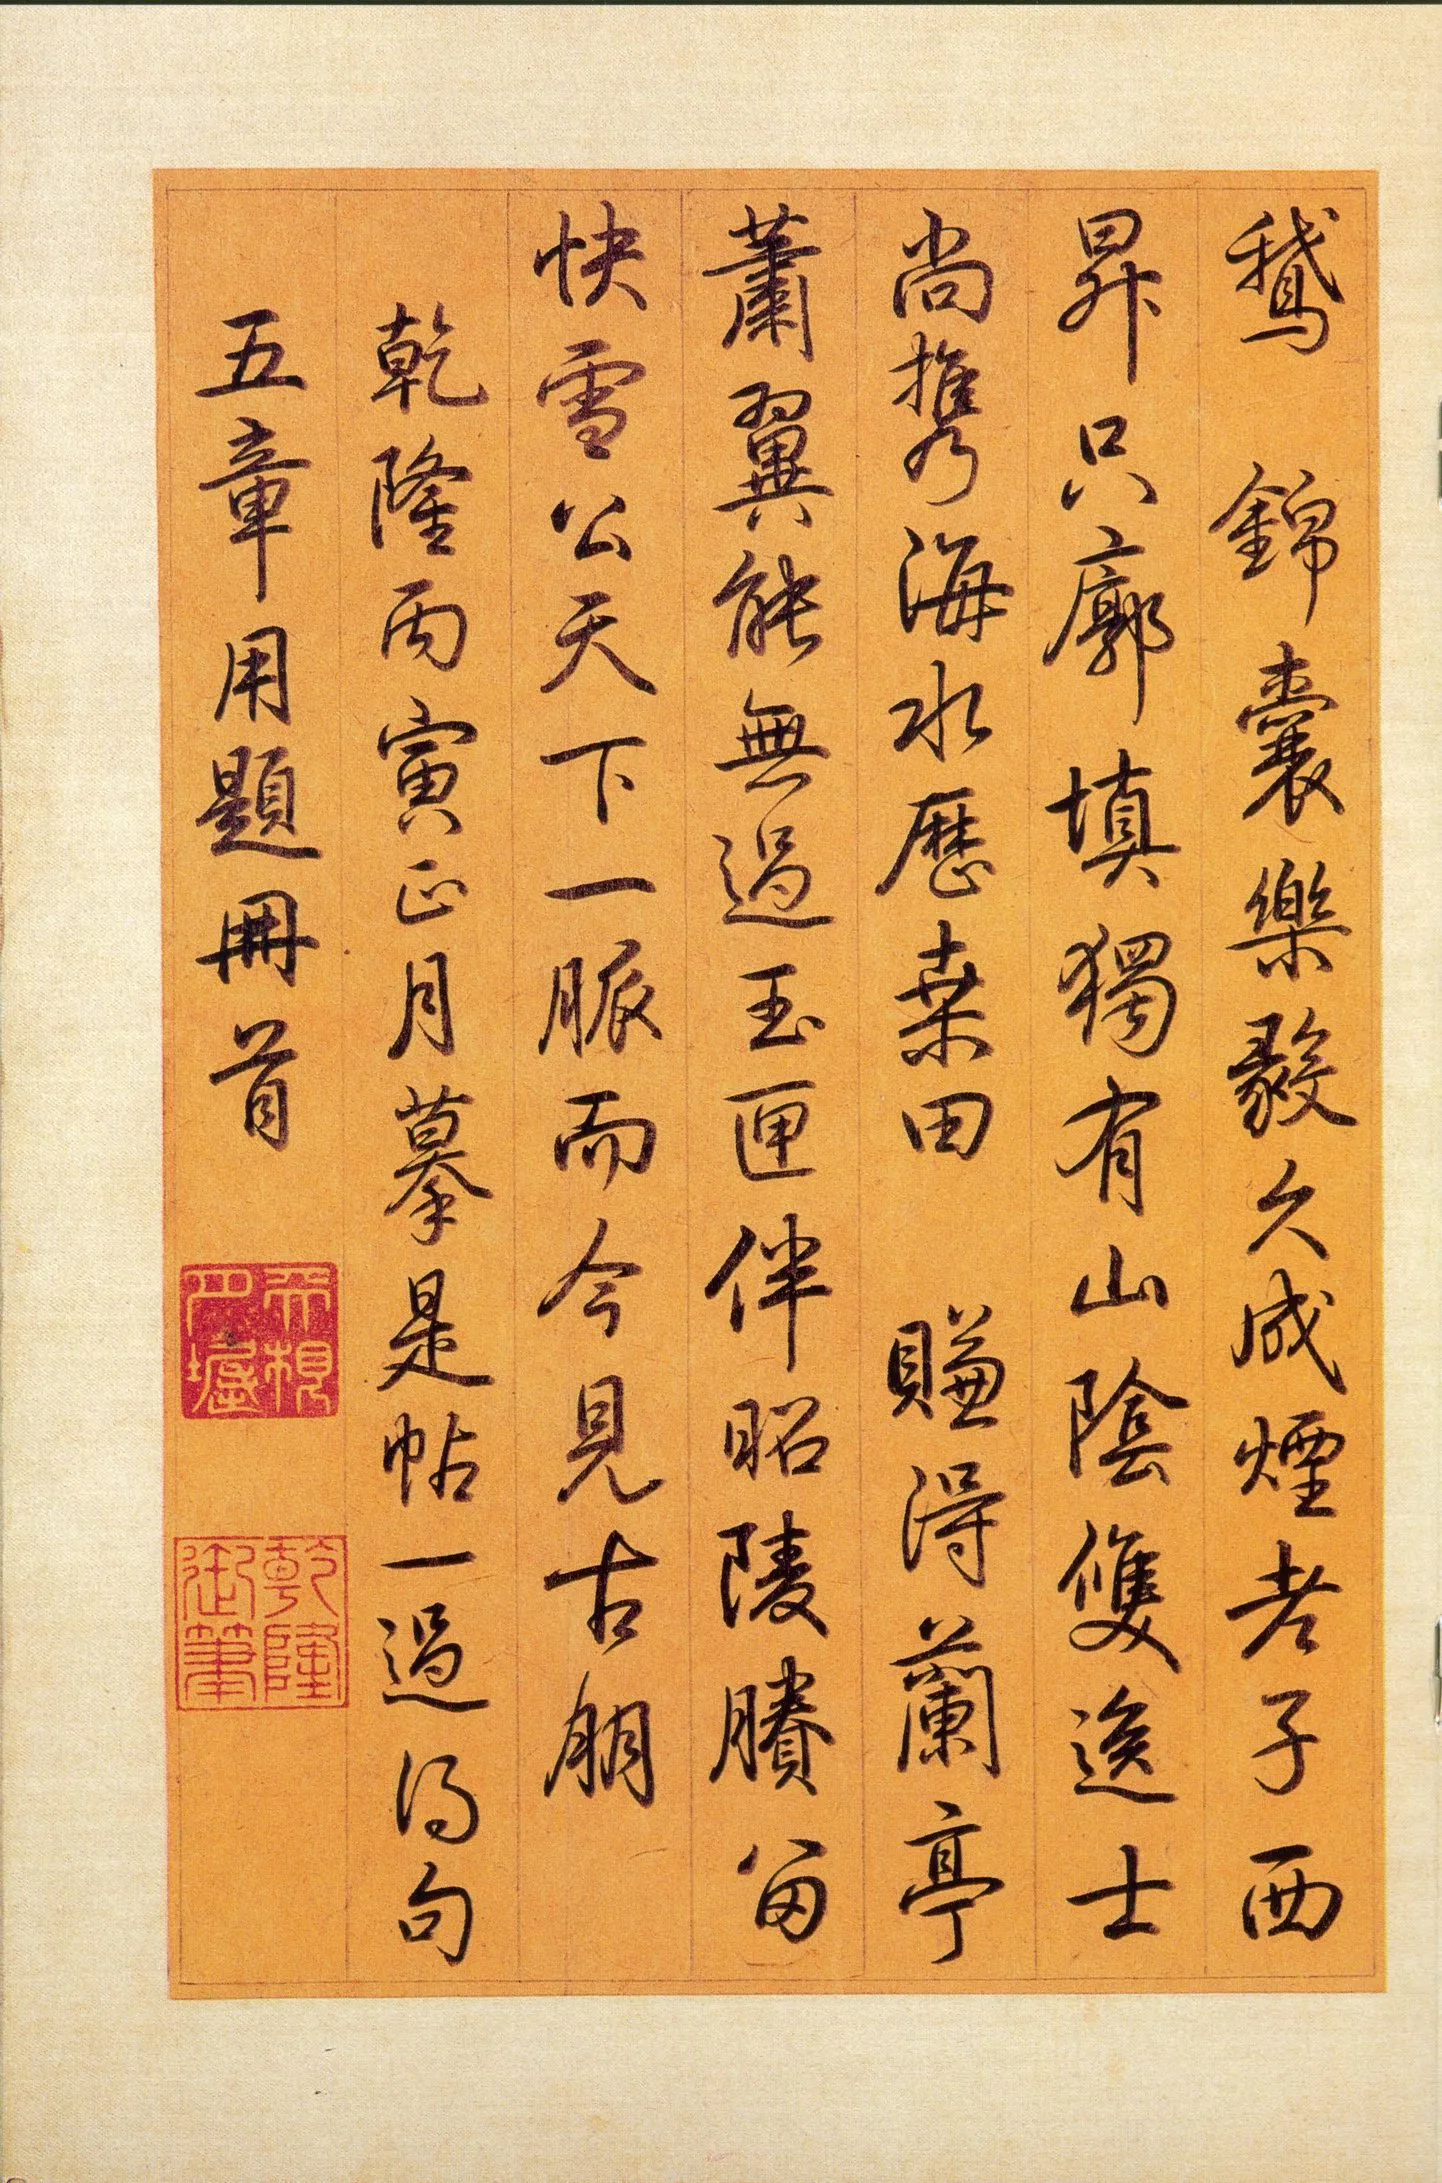 鵞 錦囊樂毅久成煙老子西
昇只廓填獨有山陰雙逸士
尚攜海水歷桑田 賺得蘭亭
蕭翼能無過玉匣伴昭陵賸留
快雪公天下一脈而今見古朋
乾隆丙寅正月摹是帖一過得句
五章用題冊首
乾隆御筆